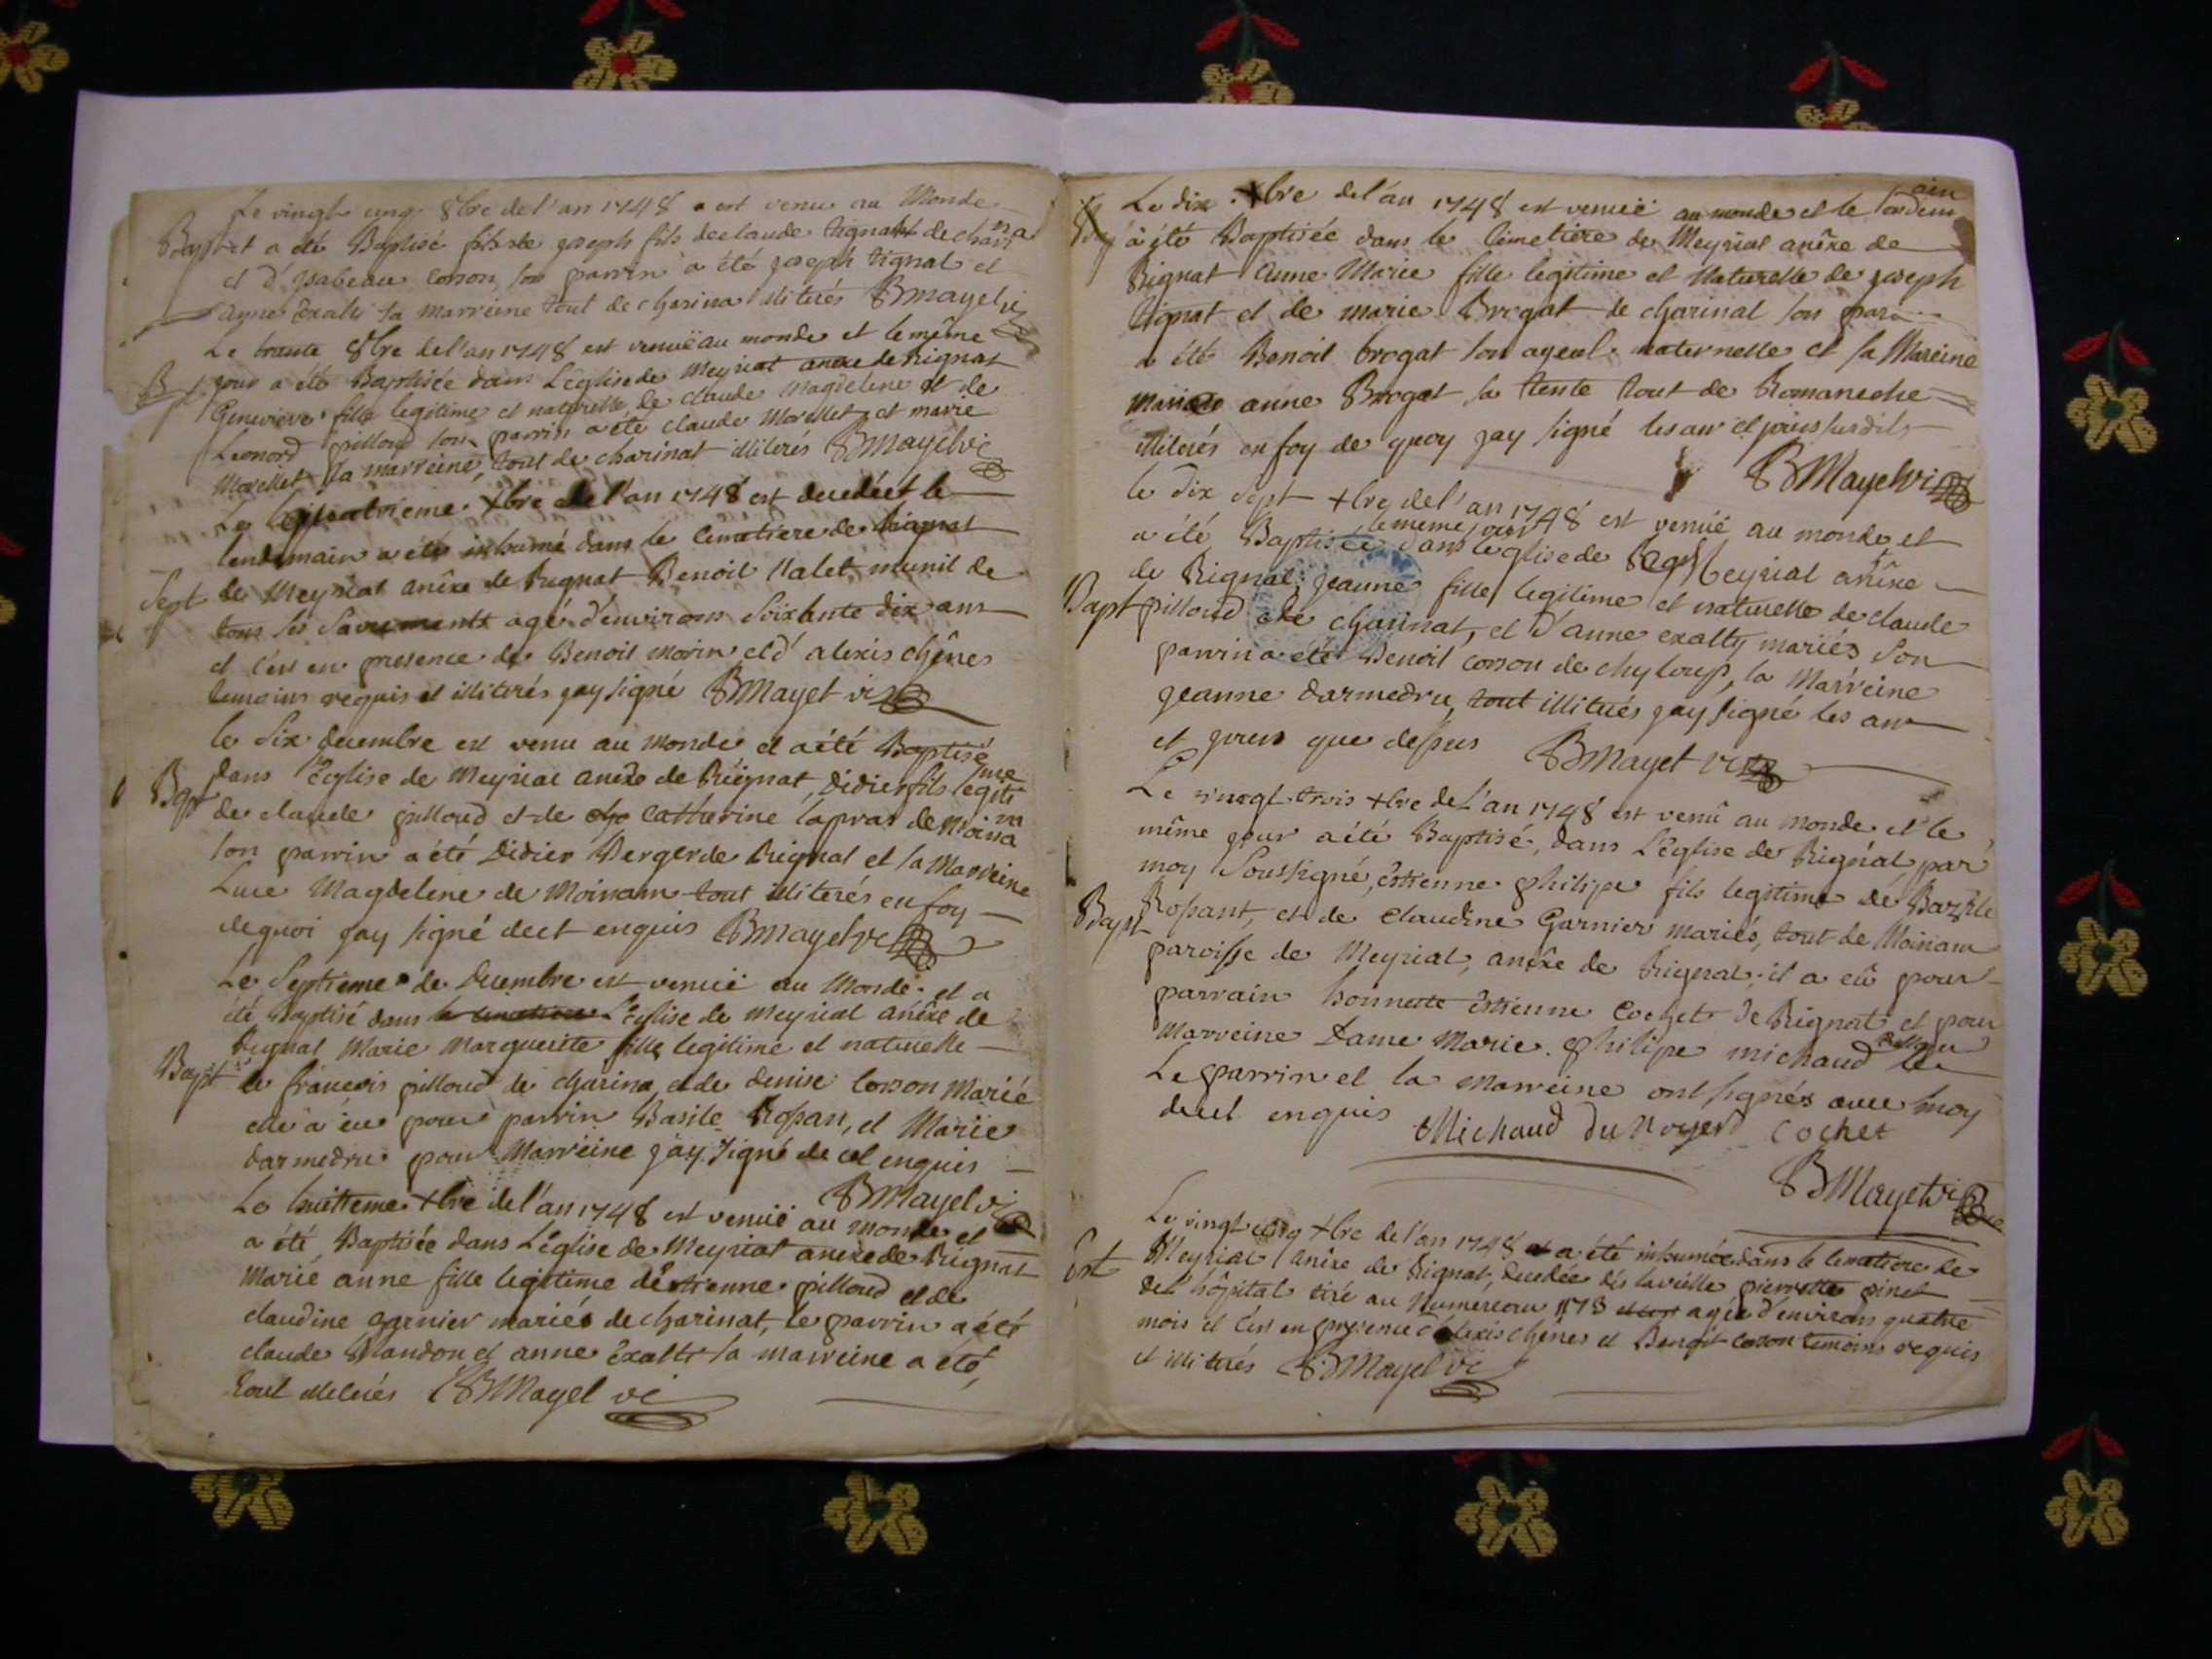 Le vingt cinq 8bre de l'an 1748 est venu au Monde
Bapt et a été Baptisé joseph fils de claude tignat de charina
et d'jsabeau corson, son parrin a été joseph tignat et
anne Exalti sa marreine tout de charina illiterés BMayet vi
Le trante 8bre de l'an 1748 est venuë au monde et le même
Bpt jour a été Baptisée dans L'église de Meyriat anexe de Rignat
Genevieve fille legitime et naturelle de claude Magdelene et de
Leonord pilloud son parrin a été claude Morellet et marie
Morellet sa marreine, tout de charinat illiterés BMayet vi
Le quatrieme xbre de l'an 1748 est decedé et le
lendemain a été inhumé dans le Cimetiere de
Sept de Meyriat anêxe de Rignat Benoit Valet munit de
tous ses Sacrements agé d'environs Soixante dix ans
et c'est en presence de Benoit morin et d'alexis chênes
temoins requis et illiterés jay signé BMayet vi
le Six decembre est venu au monde et a été Baptisé
dans l'Eglise de Meyriat anêxe de Rignat, Didier fils legitime
Bapt de claude pilloud et de Catherine lapras de Moinam
son parrin a été Didier Berger de Rignat et sa Marreine
Luce Magdelene de Moinam tout illiterés en foy
de quoi jay signé de ct enquis BMayet vi
Le Septieme de Decembre est venuë au Monde et a
été Baptisé dans le cimetiere L'eglise de Meyriat anêxe de
Rignat Marie Marguerite fille legitime et naturelle
Bapt de françois pilloud de charina, et de denise Corson Marié
elle a eu pour parrin Basile Rossan, et Marie
darmedru pour Marreine jay signé de ce enquis
BMayet vi
Le huitieme xbre de l'an 1748 est venuë au monde et
a été Baptisée dans L'église de Meyriat anexe de Rignat
Marie anne fille legitime d'Estienne pilloud et de
claudine garnier mariés de charinat, le parrin a été
claude Blandon et anne Exalti sa marreine a été,
tout illiterés BMayet vi
Le dix xbre de l'an 1748 est venuë au monde et le lendemain
à été Baptisée dans le Cimetiere de Meyriat anêxe de
Rignat Anne Marie fille legitime et Naturelle de joseph
tignat et de marie Brogat de charinat son
a été Benoit brogat son ayeul maternelle et sa Mareine
anne Brogat sa tente tout de Romaneche
illiterés en foy de quoy jay signé les an et jours susdits
BMayet vi
le Dix Sept xbre de l'an 1748 est venuë au monde et
le meme jour
a été Baptisée dans leglise de Meyriat anêxe
de Rignat, jeanne fille legitime et naturelle de claude
Bapt pilloud de charinat, et d'anne exalty mariés Son
parrin a été Benoit corson de chyloup, la Marreine
jeanne darmedru, tout illiterés jay signé les an
et jours que dessus BMayet vi
Le vingt trois xbre de L'an 1748 est venû au monde et le
même jour a été Baptisé, dans L'église de Rignat, par
moy Soussigné, Estienne philipe fils legitime de Bazile
Bapt Rossant, et de Claudine Garnier mariés, tout de Moinam
paroisse de Meyriat, anêxe de Rignat, il a eû pour
parrain honneste Estienne Cochet de Rignat et pour
Marreine Dame Marie philipe michaud
Le parrin et la marreine ont signés avec moy
de ce enquis Michaud Du Noyer Cochet
BMayet vi
Le vingt cinq xbre de l'an 1748 a été inhumée dans le cimetiere de
Meyriat anêxe de Rignat, decedée dès la veille pierrette pinet
del hôpital tiré au Numéreau 1178 agée d'environ quatre
mois et c'est en presence d'alexis chênes et Benoit corson temoins requis
et illiterés BMayet vi